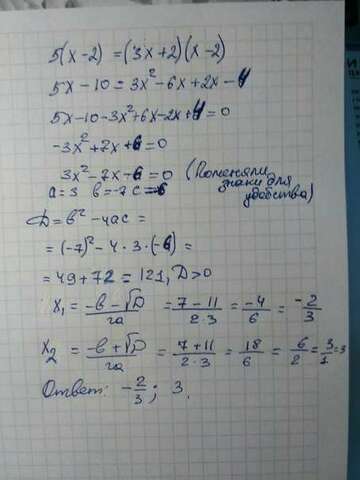 5(x-2) = (3x+2)(x-2)
5x-10 = 3x²-6x+2x-4
5x-10-3x²+6x-2x+4=0
-3x²+7x+6=0
3x²-7x-6=0 (Поменяли знаки для удобства)
a=3 b=-7 c=-6
D=b²-4ac=
=(-7)²-4·3·(-6)=
=49+72=121, D>0
x₁ = (-b-√D)/2a = (7-11)/(2·3) = -4/6 = -2/3
x₂ = (-b+√D)/2a = (7+11)/(2·3) = 18/6 = 6/2 = 3/1 = 3
Ответ: -2/3; 3.